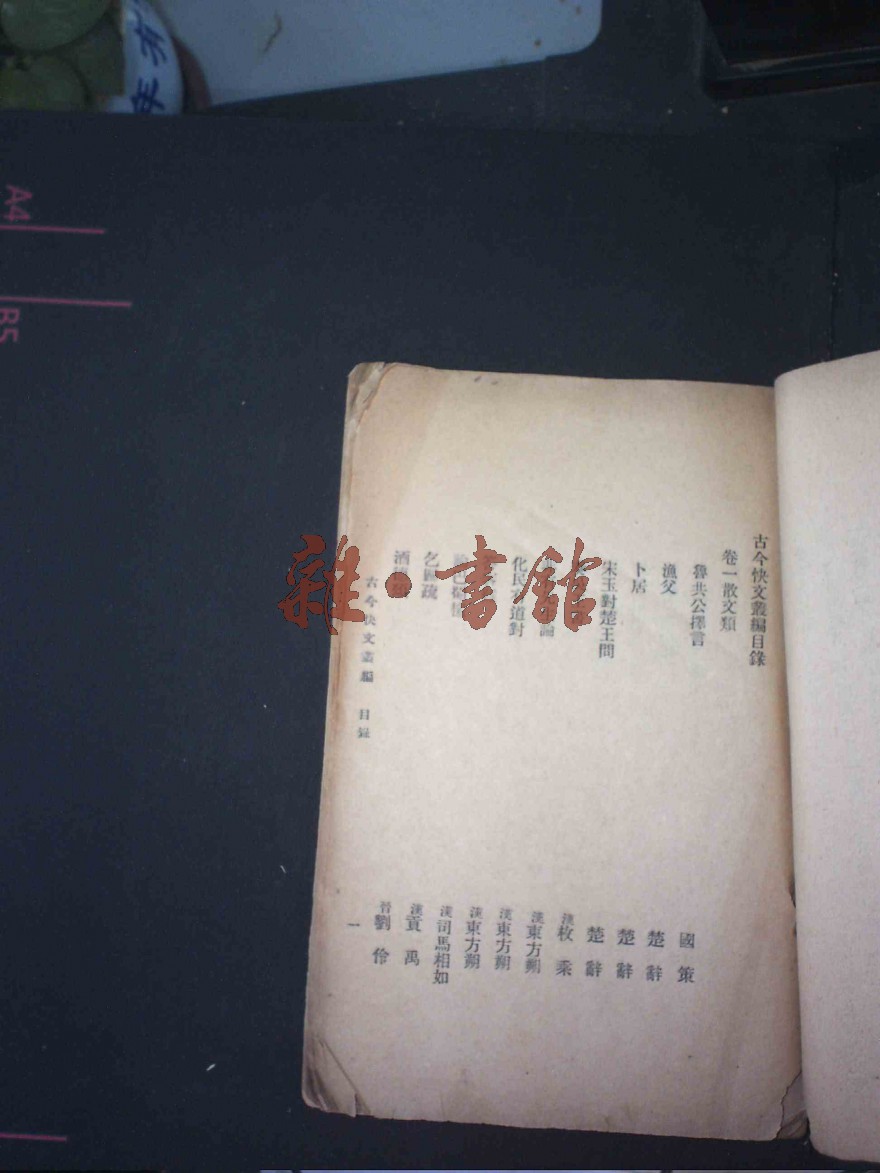 古今快文叢編目錄
卷一散文類
魯共公擇言 國策
漁父 楚辭
卜居 楚辭
宋玉對楚王問 楚辭
漢枚乘
論 漢東方朔
化民有道對 漢東方朔
漢東方朔
漢司馬相如
乞 疏 漢貢禹
酒 晉劉伶
古今快文叢編 目錄 一
雜·書館
A4
B5
年